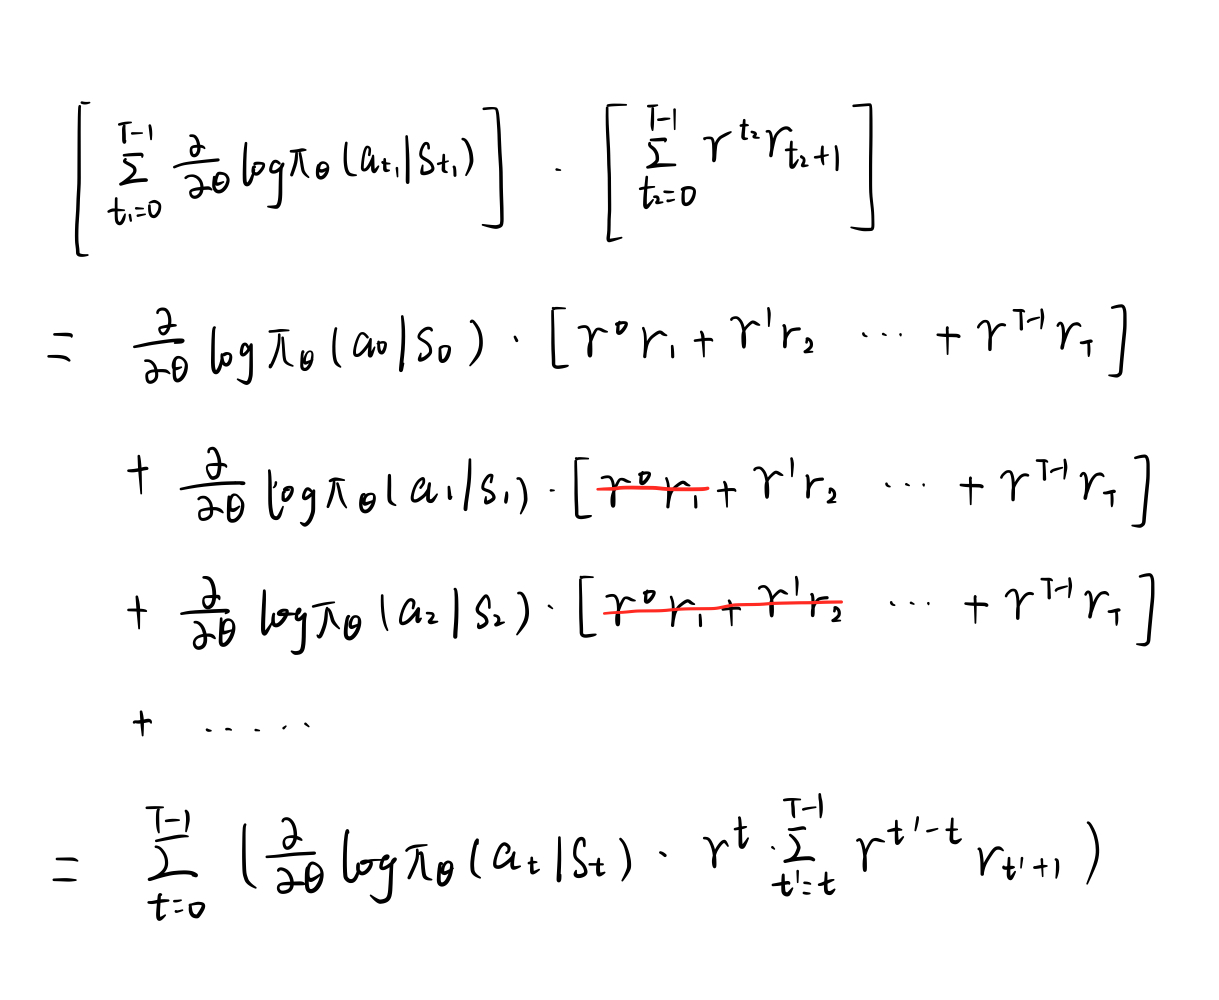 [ \sum_{t_1=0}^{T-1} \frac{\partial}{\partial\theta} \log \pi_\theta (a_{t_1} | s_{t_1}) ] · [ \sum_{t_2=0}^{T-1} γ^{t_2} r_{t_2+1} ]
= \frac{\partial}{\partial\theta} \log \pi_\theta (a_0 | s_0) · [ γ^0 r_1 + γ^1 r_2 ··· + γ^{T-1} r_T ]
+ \frac{\partial}{\partial\theta} \log \pi_\theta (a_1 | s_1) · [ γ^0 r_1 + γ^1 r_2 ··· + γ^{T-1} r_T ]
+ \frac{\partial}{\partial\theta} \log \pi_\theta (a_2 | s_2) · [ γ^0 r_1 + γ^1 r_2 ··· + γ^{T-1} r_T ]
+ ·····
= \sum_{t=0}^{T-1} ( \frac{\partial}{\partial\theta} \log \pi_\theta (a_t | s_t) · γ^t · \sum_{t'=t}^{T-1} γ^{t'-t} r_{t'+1} )